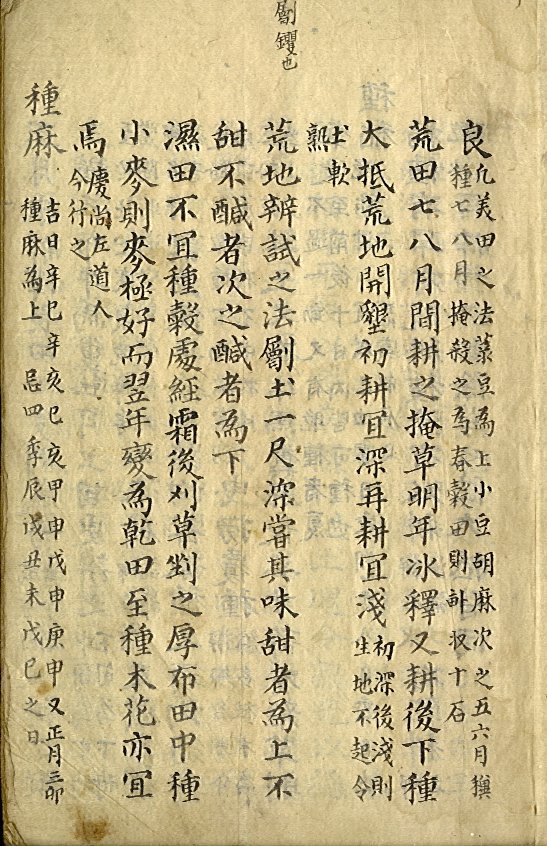 劚钁也
良凡美田之法菉豆為上小豆胡麻次之五六月穳
種七八月掩殺之為春穀田則畝收十石
荒田七八月間耕之掩草明年氷釋又耕後下種
大抵荒地開墾初耕冝深再耕冝淺初深後淺則
生地不起令
土軟
熟
荒地辨試之法劚土一尺深嘗其味甜者為上不
甜不醎者次之醎者為下
濕田不冝種穀處經霜後刈草剉之厚布田中種
小麥則麥極好而翌年變為乾田至種木花亦冝
焉慶尚左道人
今行之
種麻吉日辛巳辛亥巳亥甲申戊申庚申又正月三卯
種麻為上 忌四季辰戌丑未戊巳之日